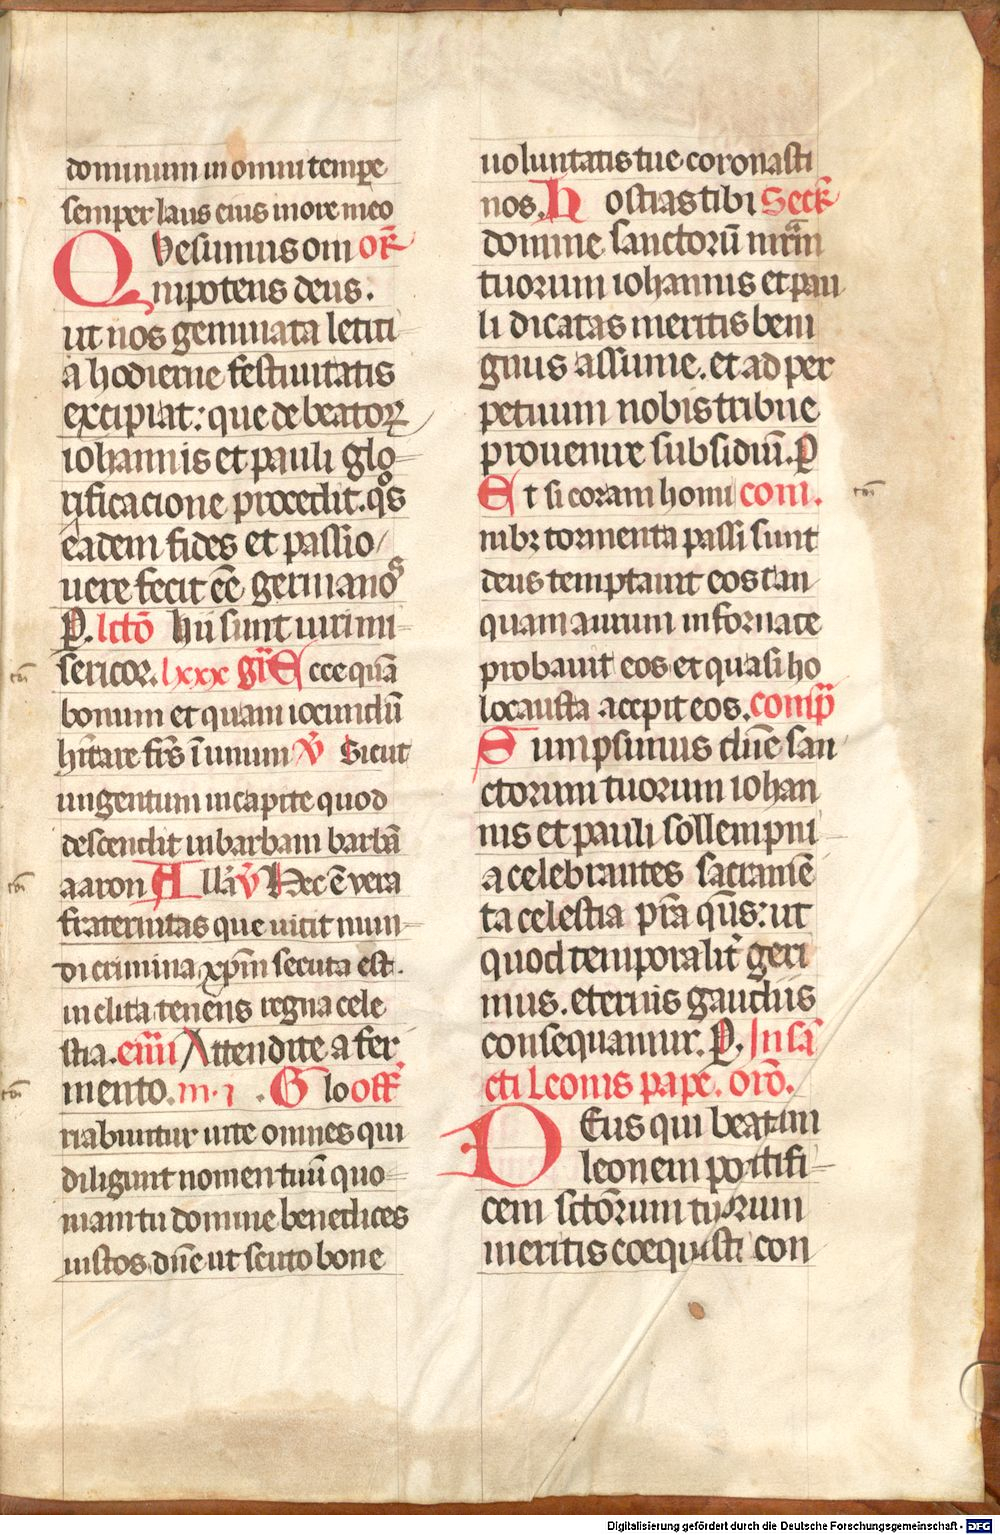 dominum in omni tempe
semper laus eius in ore meo
Quesumus om or̄
nipotens deus.
ut nos geminata letiti
a hodierne festiuitatis
excipiat: que de beatoꝝ
iohannis et pauli glo
rificacione procedit. qͦs
eadem fides et passio
uere fecit eē germanos
P. lctō hii sunt uiri mi
sericor. lxxx gr̄ Ecce quā
bonum et quam iocundū
hītare frēs ī unum V̄ Sicut
ungentum in capite quod
descendit in barbam barbā
aaron Allā V̄ Hec ē vera
fraternitas que uicit mun
di crimina xp̄m secuta est.
inclita tenens regna cele
stia. eūu Attendite a fer
mento. m. i. Glo off̄
riabuntur in te omnes qui
diligunt nomen tuū quo
niam tu domine benedices
iustos dn̄e ut scuto bone
uoluntatis tue coronasti
nos. Hostias tibi Secr̄
domine sanctorū mr̄m
tuorum iohannis et pau
li dicatas meritis beni
gnus assume. et ad per
petuum nobis tribue
prouenire subsidiū. P
Et si coram homi com.
nibꝫ tormenta passi sunt
deus temptauit eos tan
quam aurum in fornace
probauit eos et quasi ho
locausta accepit eos. comp̄
Sumpsimus dn̄e san
ctorum tuorum iohan
nis et pauli sollempni
a celebrantes sacramē
ta celestia pr̄a qs̄: ut
quod temporalit̄ geri
mus. eternis gaudiis
consequamur. P. In sā
cti Leonis pape. orō.
DEus qui beatum
leonem pontifi
cem sctōrum tuorum
meritis coequasti con
Digitalisierung gefördert durch die Deutsche Forschungsgemeinschaft - DFG